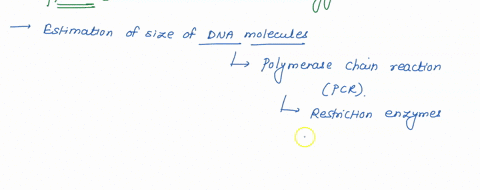 → Estimation of size of DNA molecules
↳ Polymerase chain reaction
(PCR).
↳ Restriction enzymes